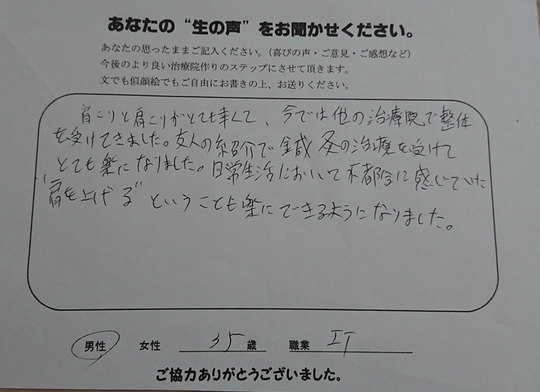 あなたの“生の声”をお聞かせください。
あなたの思ったままご記入ください。（喜びの声・ご意見・ご感想など）
今後のより良い治療院作りのステップにさせて頂きます。
文でも似顔絵でもご自由にお書きの上、お送りください。
肩こりがとても辛くて、今では他の治療院で整体
を受けてきました。友人の紹介で鍼灸の治療を受けて
とても楽になりました。日常生活において不都合に感じていた
“肩を上げる”ということも楽にできるようになりました。
男性 女性 35歳 職業 IT
ご協力ありがとうございました。